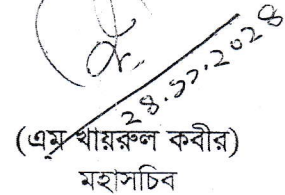 ২৪.১১.২০২৪
(এম খায়রুল কবীর)
মহাসচিব